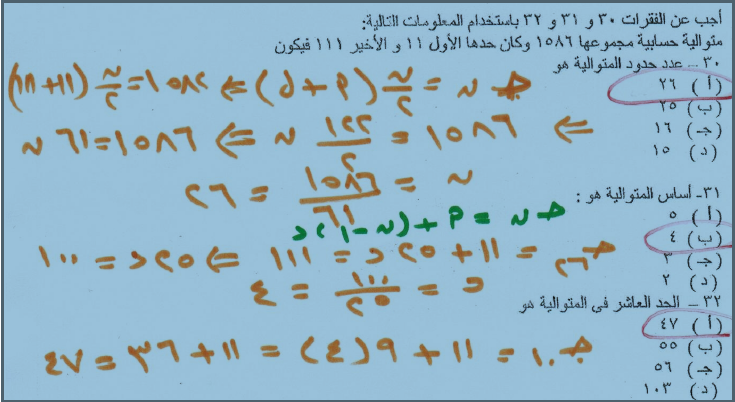 أجب عن الفقرات ٣٠ و ٣١ و ٣٢ باستخدام المعلومات التالية:
متوالية حسابية مجموعها ١٥٨٦ وكان حدها الأول ١١ و الأخير ١١١ فيكون
٣٠ – عدد حدود المتوالية هو
جـ ن = ن/٢ (م + ل) ⇐ ١٥٨٦ = ن/٢ (١١ + ١١١)
( أ ) ٢٦
(ب) ٢٥
⇐ ١٥٨٦ = ١٢٢/٢ ن ⇐ ١٥٨٦ = ٦١ ن
(جـ) ١٦
(د) ١٥
ن = ١٥٨٦/٦١ = ٢٦
٣١- أساس المتوالية هو :
( أ ) ٥
ح ن = م + (ن – ١) د
(ب) ٤
(جـ) ٣
ح ٢٦ = ١١ + ٢٥ د = ١١١ ⇐ ٢٥ د = ١٠٠
(د) ٢
د = ١٠٠/٢٥ = ٤
٣٢ – الحد العاشر في المتوالية هو
( أ ) ٤٧
(ب) ٥٥
ح ١٠ = ١١ + ٩ (٤) = ١١ + ٣٦ = ٤٧
(جـ) ٥٦
(د) ١٠٣